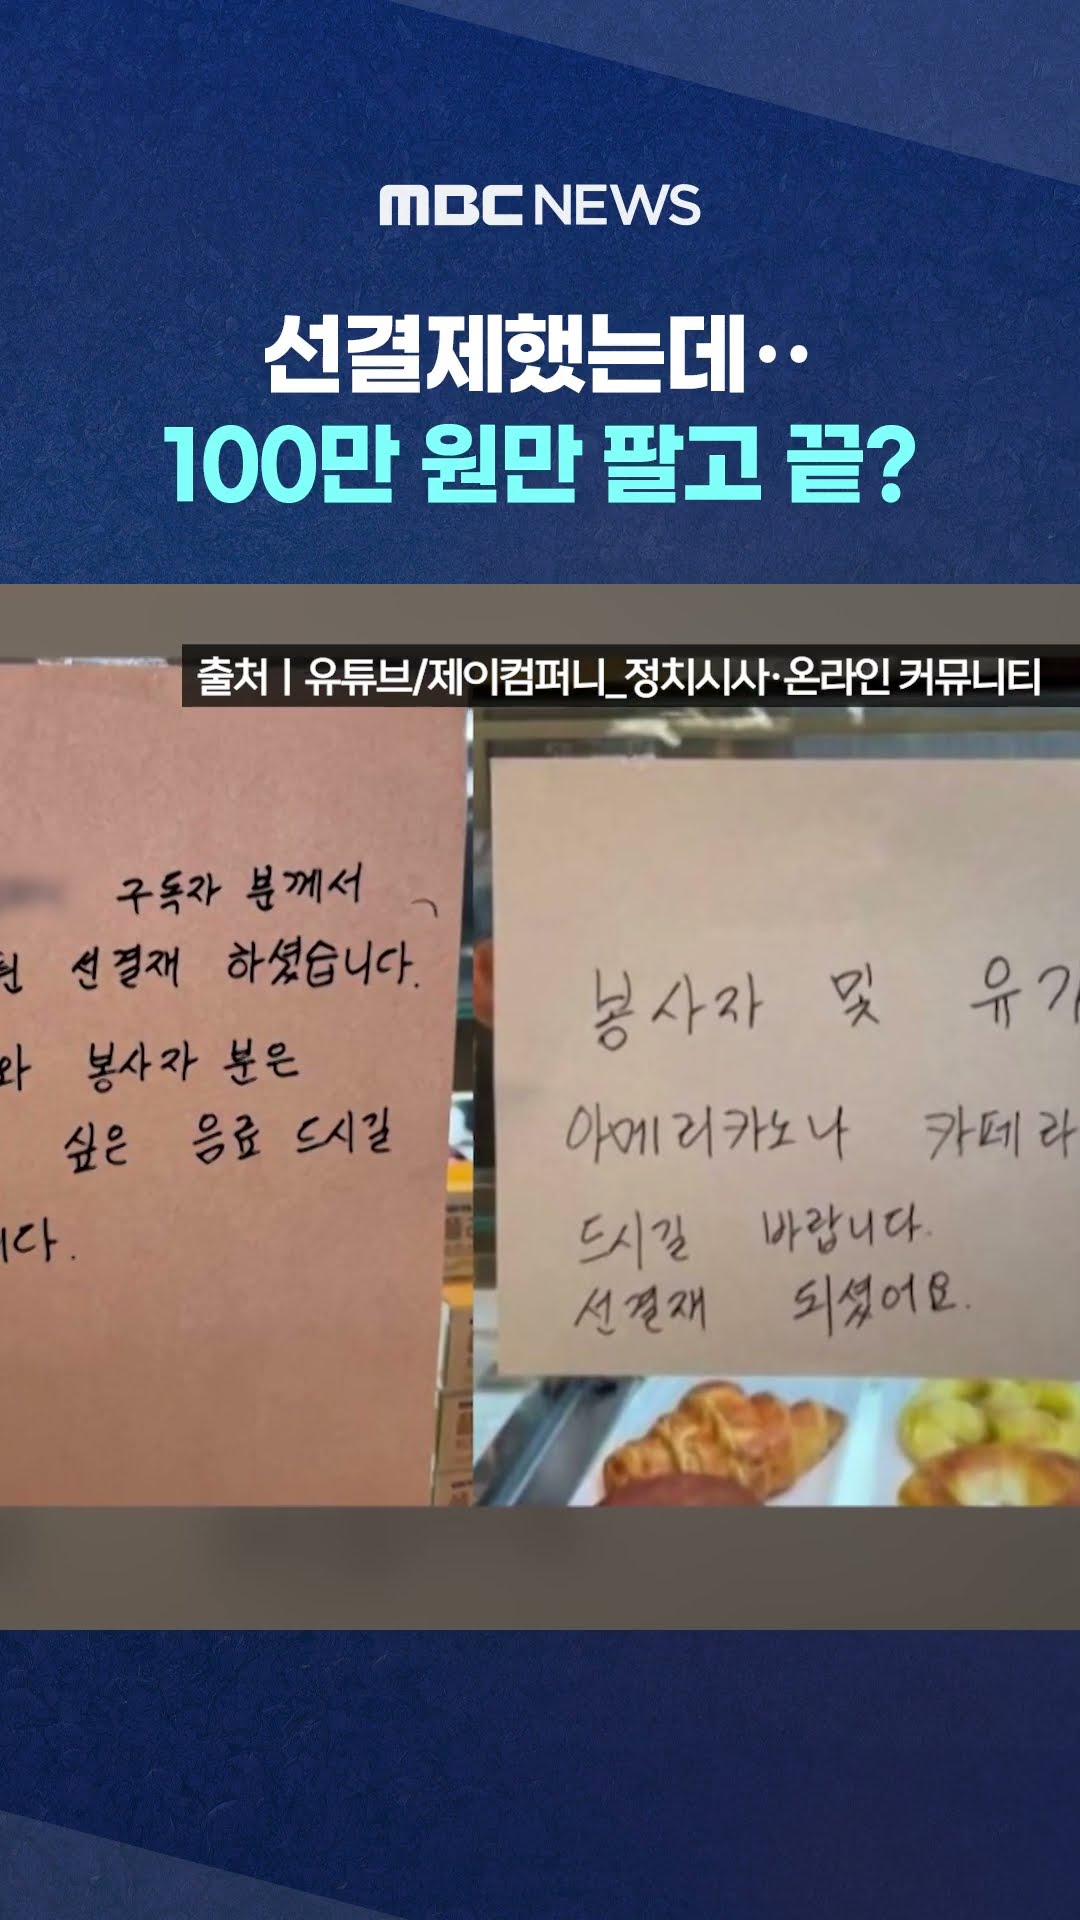 MBC NEWS
선결제했는데··
100만 원만 팔고 끝?
출처ㅣ유튜브/제이컴퍼니_정치시사·온라인 커뮤니티
구독자 분께서
선결재 하셨습니다.
와 봉사자 분은
싶은 음료 드시길
니다.
봉사자 및 유가
아메리카노나 카페라
드시길 바랍니다.
선결재 되셨어요.